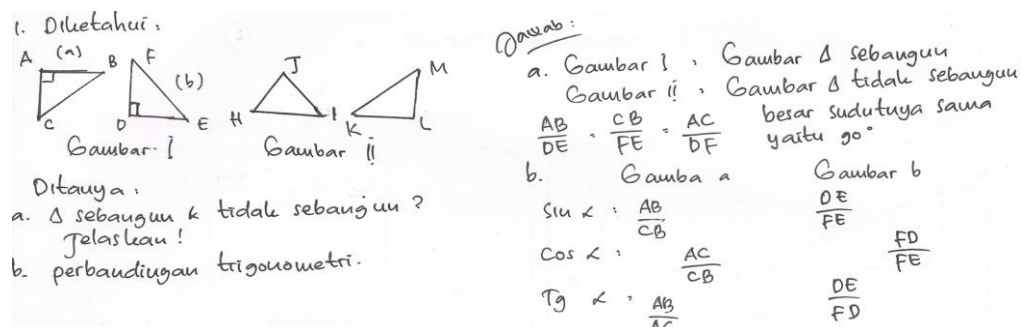 1. Diketahui :
A (a) B F (b) J M
C D E H I K L
Gambar I Gambar II
Ditanya :
a. Δ sebangun & tidak sebangun ?
Jelaskan !
b. perbandingan trigonometri.
Jawab :
a. Gambar I , Gambar Δ sebangun
Gambar II , Gambar Δ tidak sebangun
AB/DE = CB/FE = AC/DF besar sudutnya sama
yaitu 90°
b. Gamba a Gambar b
Sin α : AB/CB DE/FE
Cos α : AC/CB FD/FE
Tg α : AB/AC DE/FD